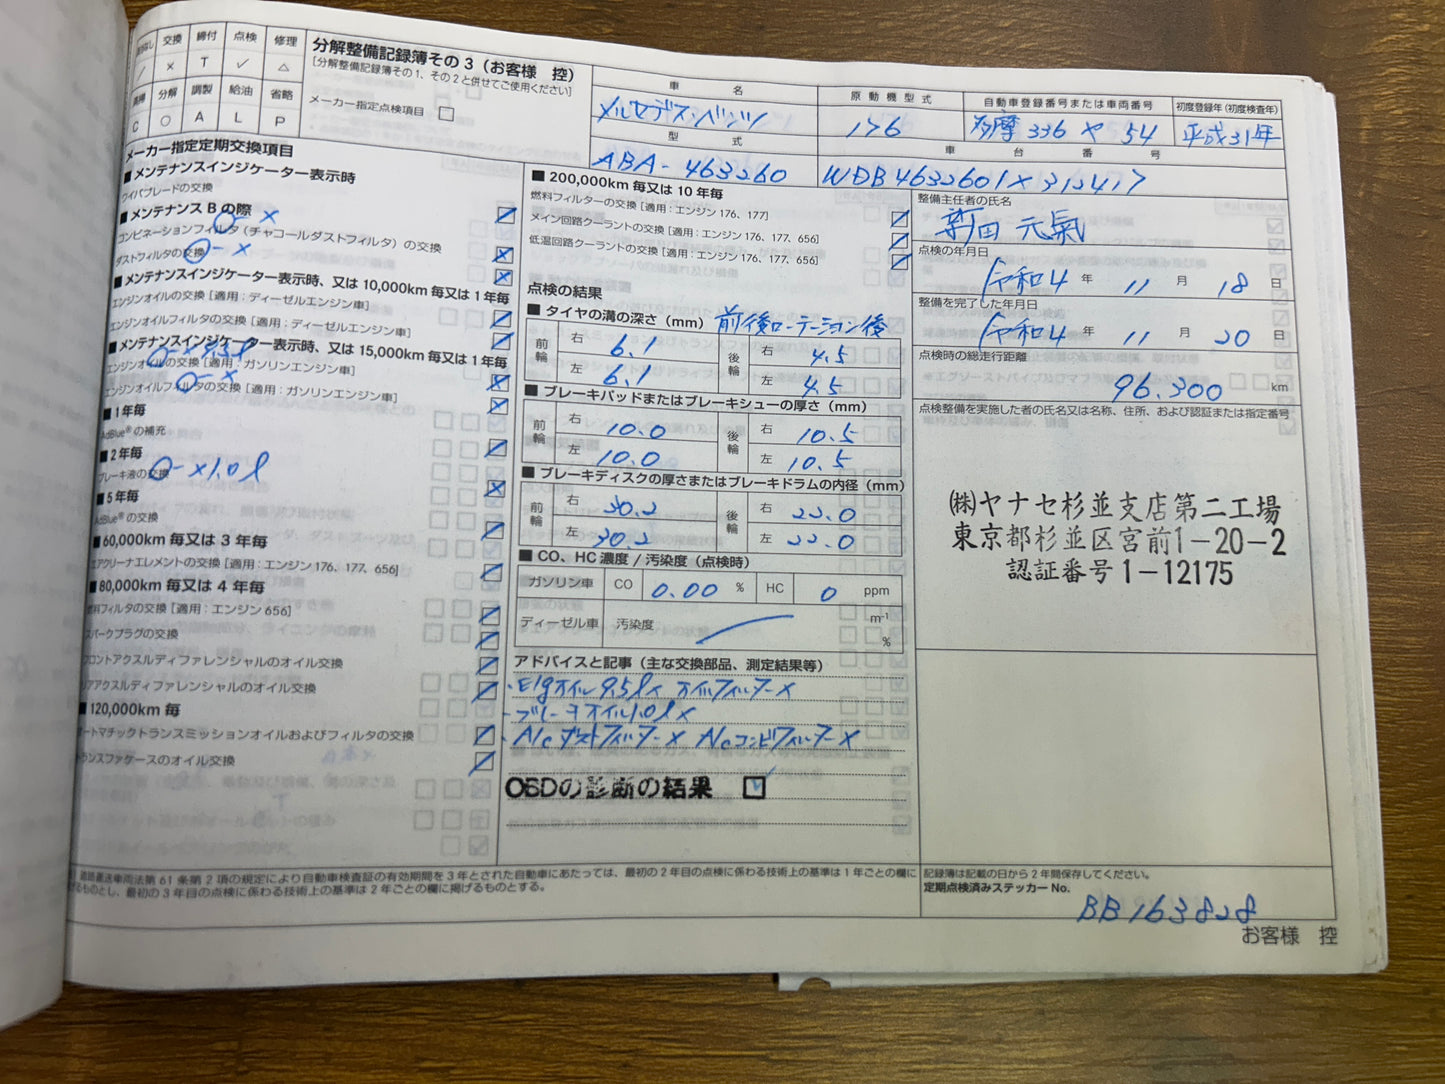 交換 締付 点検 修理
／ × T ✓ △
分解 調製 給油 省略
C ○ A L P
分解整備記録簿その3（お客様 控）
［分解整備記録簿その1、その2と併せてご使用ください］
メーカー指定点検項目 □
車 名
メルセデスベンツ
原動機型式
176
自動車登録番号または車両番号
多摩 336 や 54
初度登録年(初度検査年)
平成31年
型 式
ABA-463260
車 台 番 号
WDB4632601X312417
メーカー指定定期交換項目
■ メンテナンスインジケーター表示時
ワイパブレードの交換
■ メンテナンス B の際
○-×
コンビネーションフィルタ（チャコールダストフィルタ）の交換
ダストフィルタの交換
○-×
■ メンテナンスインジケーター表示時、又は 10,000km 毎又は 1 年毎
エンジンオイルの交換［適用：ディーゼルエンジン車］
エンジンオイルフィルタの交換［適用：ディーゼルエンジン車］
■ メンテナンスインジケーター表示時、又は 15,000km 毎又は 1 年毎
○-× 9.5ℓ
エンジンオイルの交換［適用：ガソリンエンジン車］
○-×
エンジンオイルフィルタの交換［適用：ガソリンエンジン車］
■ 1 年毎
AdBlue® の補充
■ 2 年毎
ブレーキ液の交換 ○-×1.0ℓ
■ 5 年毎
AdBlue® の交換
■ 60,000km 毎又は 3 年毎
エアクリーナエレメントの交換［適用：エンジン 176、177、656］
■ 80,000km 毎又は 4 年毎
燃料フィルタの交換［適用：エンジン 656］
スパークプラグの交換
フロントアクスルディファレンシャルのオイル交換
リアアクスルディファレンシャルのオイル交換
■ 120,000km 毎
オートマチックトランスミッションオイルおよびフィルタの交換
トランスファケースのオイル交換
■ 200,000km 毎又は 10 年毎
燃料フィルターの交換［適用：エンジン 176、177］
メイン回路クーラントの交換［適用：エンジン 176、177、656］
低温回路クーラントの交換［適用：エンジン 176、177、656］
点検の結果
■ タイヤの溝の深さ（mm） 前後ローテーション後
前輪 右 6.1 後輪 右 4.5
左 6.1 左 4.5
■ ブレーキパッドまたはブレーキシューの厚さ（mm）
前輪 右 10.0 後輪 右 10.5
左 10.0 左 10.5
■ ブレーキディスクの厚さまたはブレーキドラムの内径（mm）
前輪 右 30.2 後輪 右 22.0
左 30.2 左 22.0
■ CO、HC 濃度 / 汚染度（点検時）
ガソリン車 CO 0.00 % HC 0 ppm
ディーゼル車 汚染度 m⁻¹
%
アドバイスと記事（主な交換部品、測定結果等）
・E/gオイル9.5ℓ× オイルフィルター×
・ブレーキオイル1.0ℓ×
・A/Cダストフィルター× A/Cコンビフィルター×
OBDの診断の結果 ☑
整備主任者の氏名
新田 元氣
点検の年月日
令和4 年 11 月 18 日
整備を完了した年月日
令和4 年 11 月 20 日
点検時の総走行距離
96,300 km
点検整備を実施した者の氏名又は名称、住所、および認証または指定番号
㈱ヤナセ杉並支店第二工場
東京都杉並区宮前1-20-2
認証番号 1-12175
道路運送車両法第 61 条第 2 項の規定により自動車検査証の有効期間を 3 年とされた自動車にあたっては、最初の 2 年目の点検に係わる技術上の基準は 1 年ごとの欄に
掲げるものとし、最初の 3 年目の点検に係わる技術上の基準は 2 年ごとの欄に掲げるものとする。
記録簿は記載の日から 2 年間保存してください。
定期点検済みステッカー No.
BB163828
お客様 控